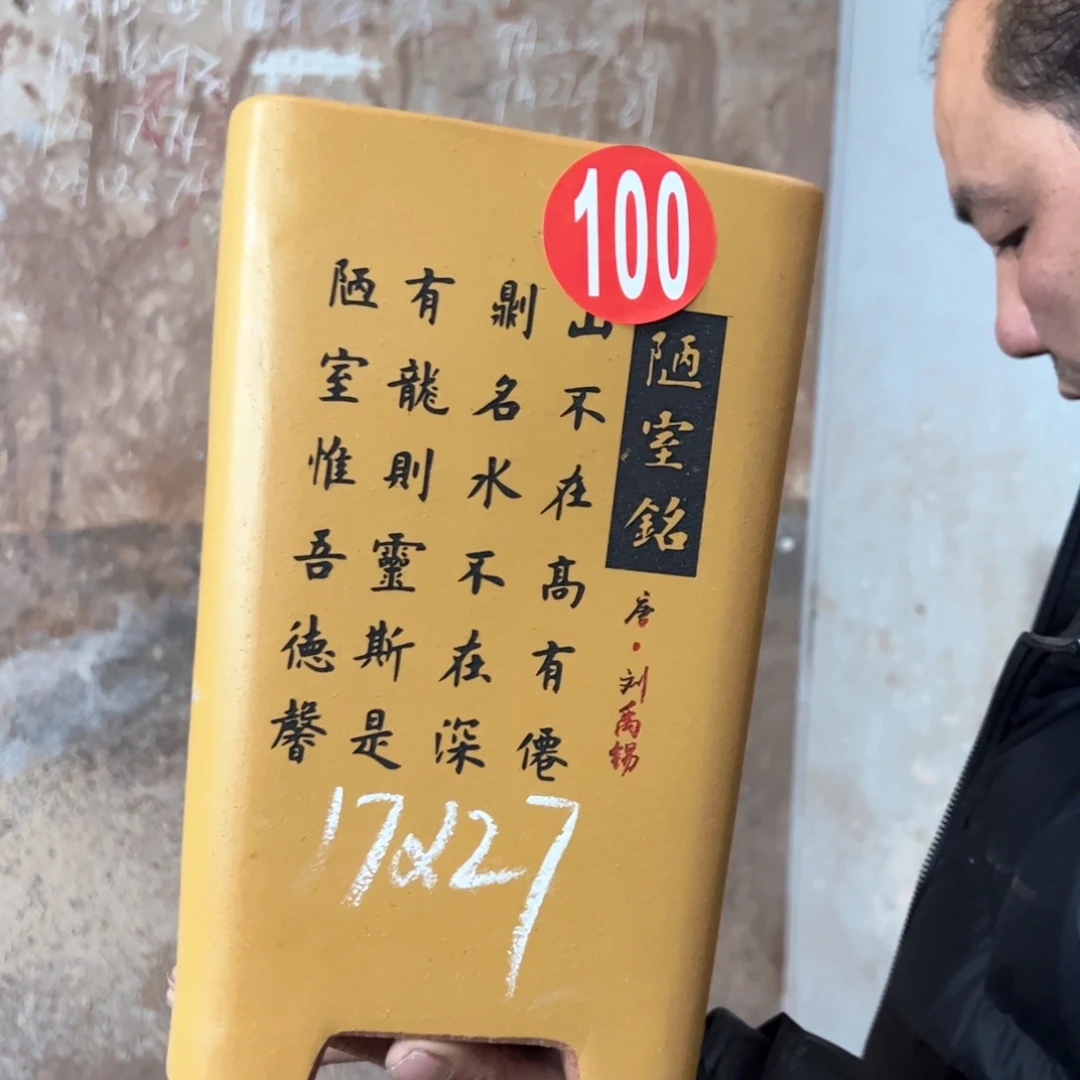 100
陋室銘
唐·刘禹锡
山不在高有僊
𠟭名水不在深
有龍則靈斯是
陋室惟吾德馨
17x27